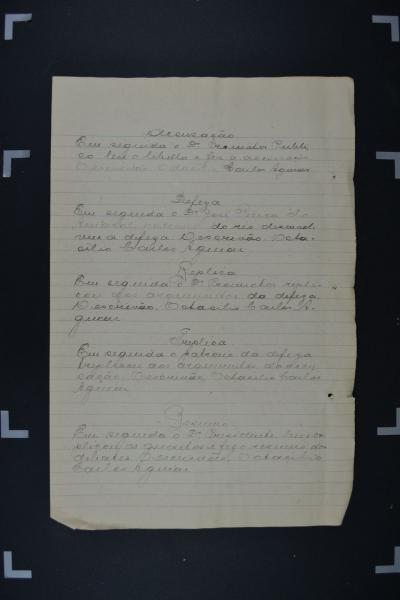 Accusação
Em seguida o Dr Promotor Publi
co leu o libello e fez a accusação
O escrivão Octacilio Carlos Aguiar
Defeza
Em seguida o Dr José
do réo desenvol
via a defeza. O escrivão. Octa-
cilio Carlos Aguiar
Replica
Em seguida o Dr Promotor repli-
cou aos argumentos da defeza.
O escrivão. Octacilio Carlos A-
guiar
Treplica
Em seguida o patrono da defeza
treplicou aos argumentos da accu
sação. O escrivão. Octacilio Carlos
Aguiar
Resumo
Em seguida o Dr Presidente
os quesitos e fez o resumo dos
debates O escrivão, Octacilio
Carlos Aguiar